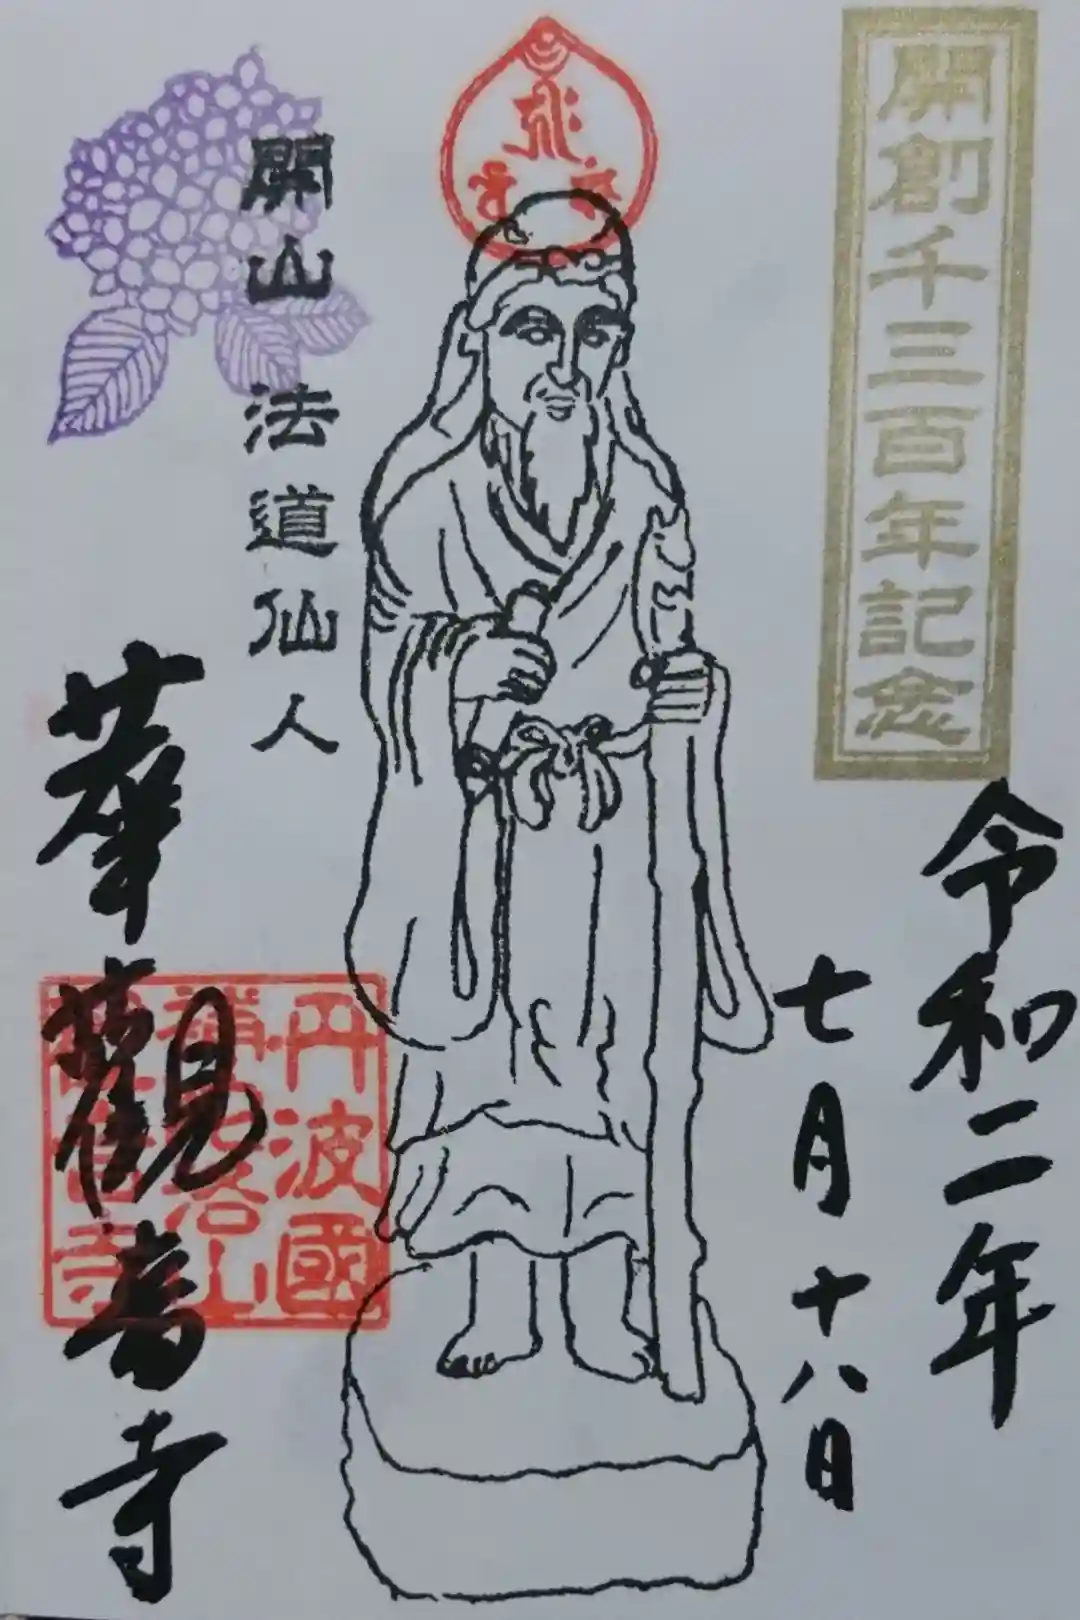 開創千三百年記念
令和二年
七月十八日
開山 法道仙人
華觀音寺
丹波國
補陀落山
觀音寺